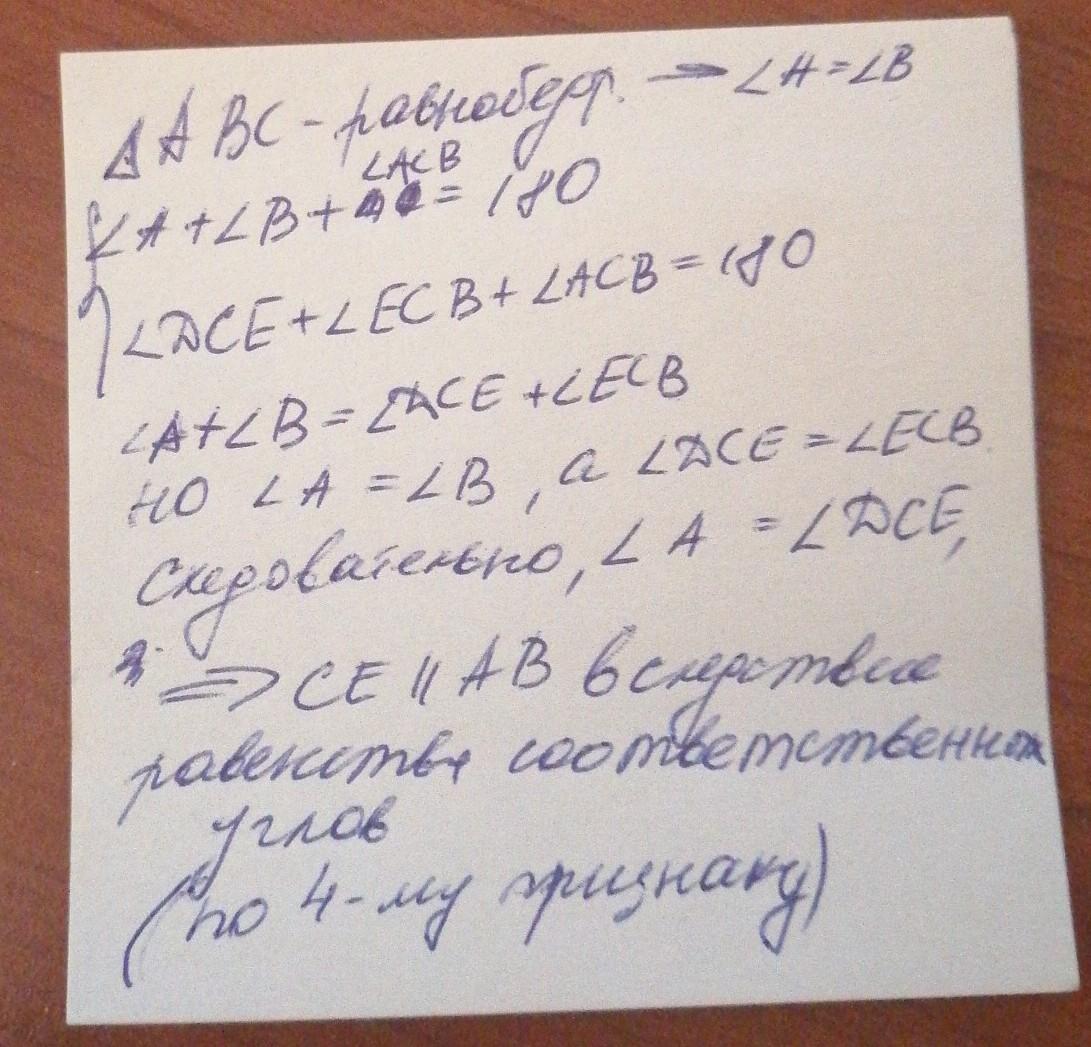 ΔABC - равнобедр. → ∠A = ∠B
∠A + ∠B + ∠ACB = 180
∠DCE + ∠ECB + ∠ACB = 180
∠A + ∠B = ∠DCE + ∠ECB
но ∠A = ∠B, а ∠DCE = ∠ECB
следовательно, ∠A = ∠DCE,
⇒ CE || AB вследствие
равенства соответственных
углов
(по 4-му признаку)